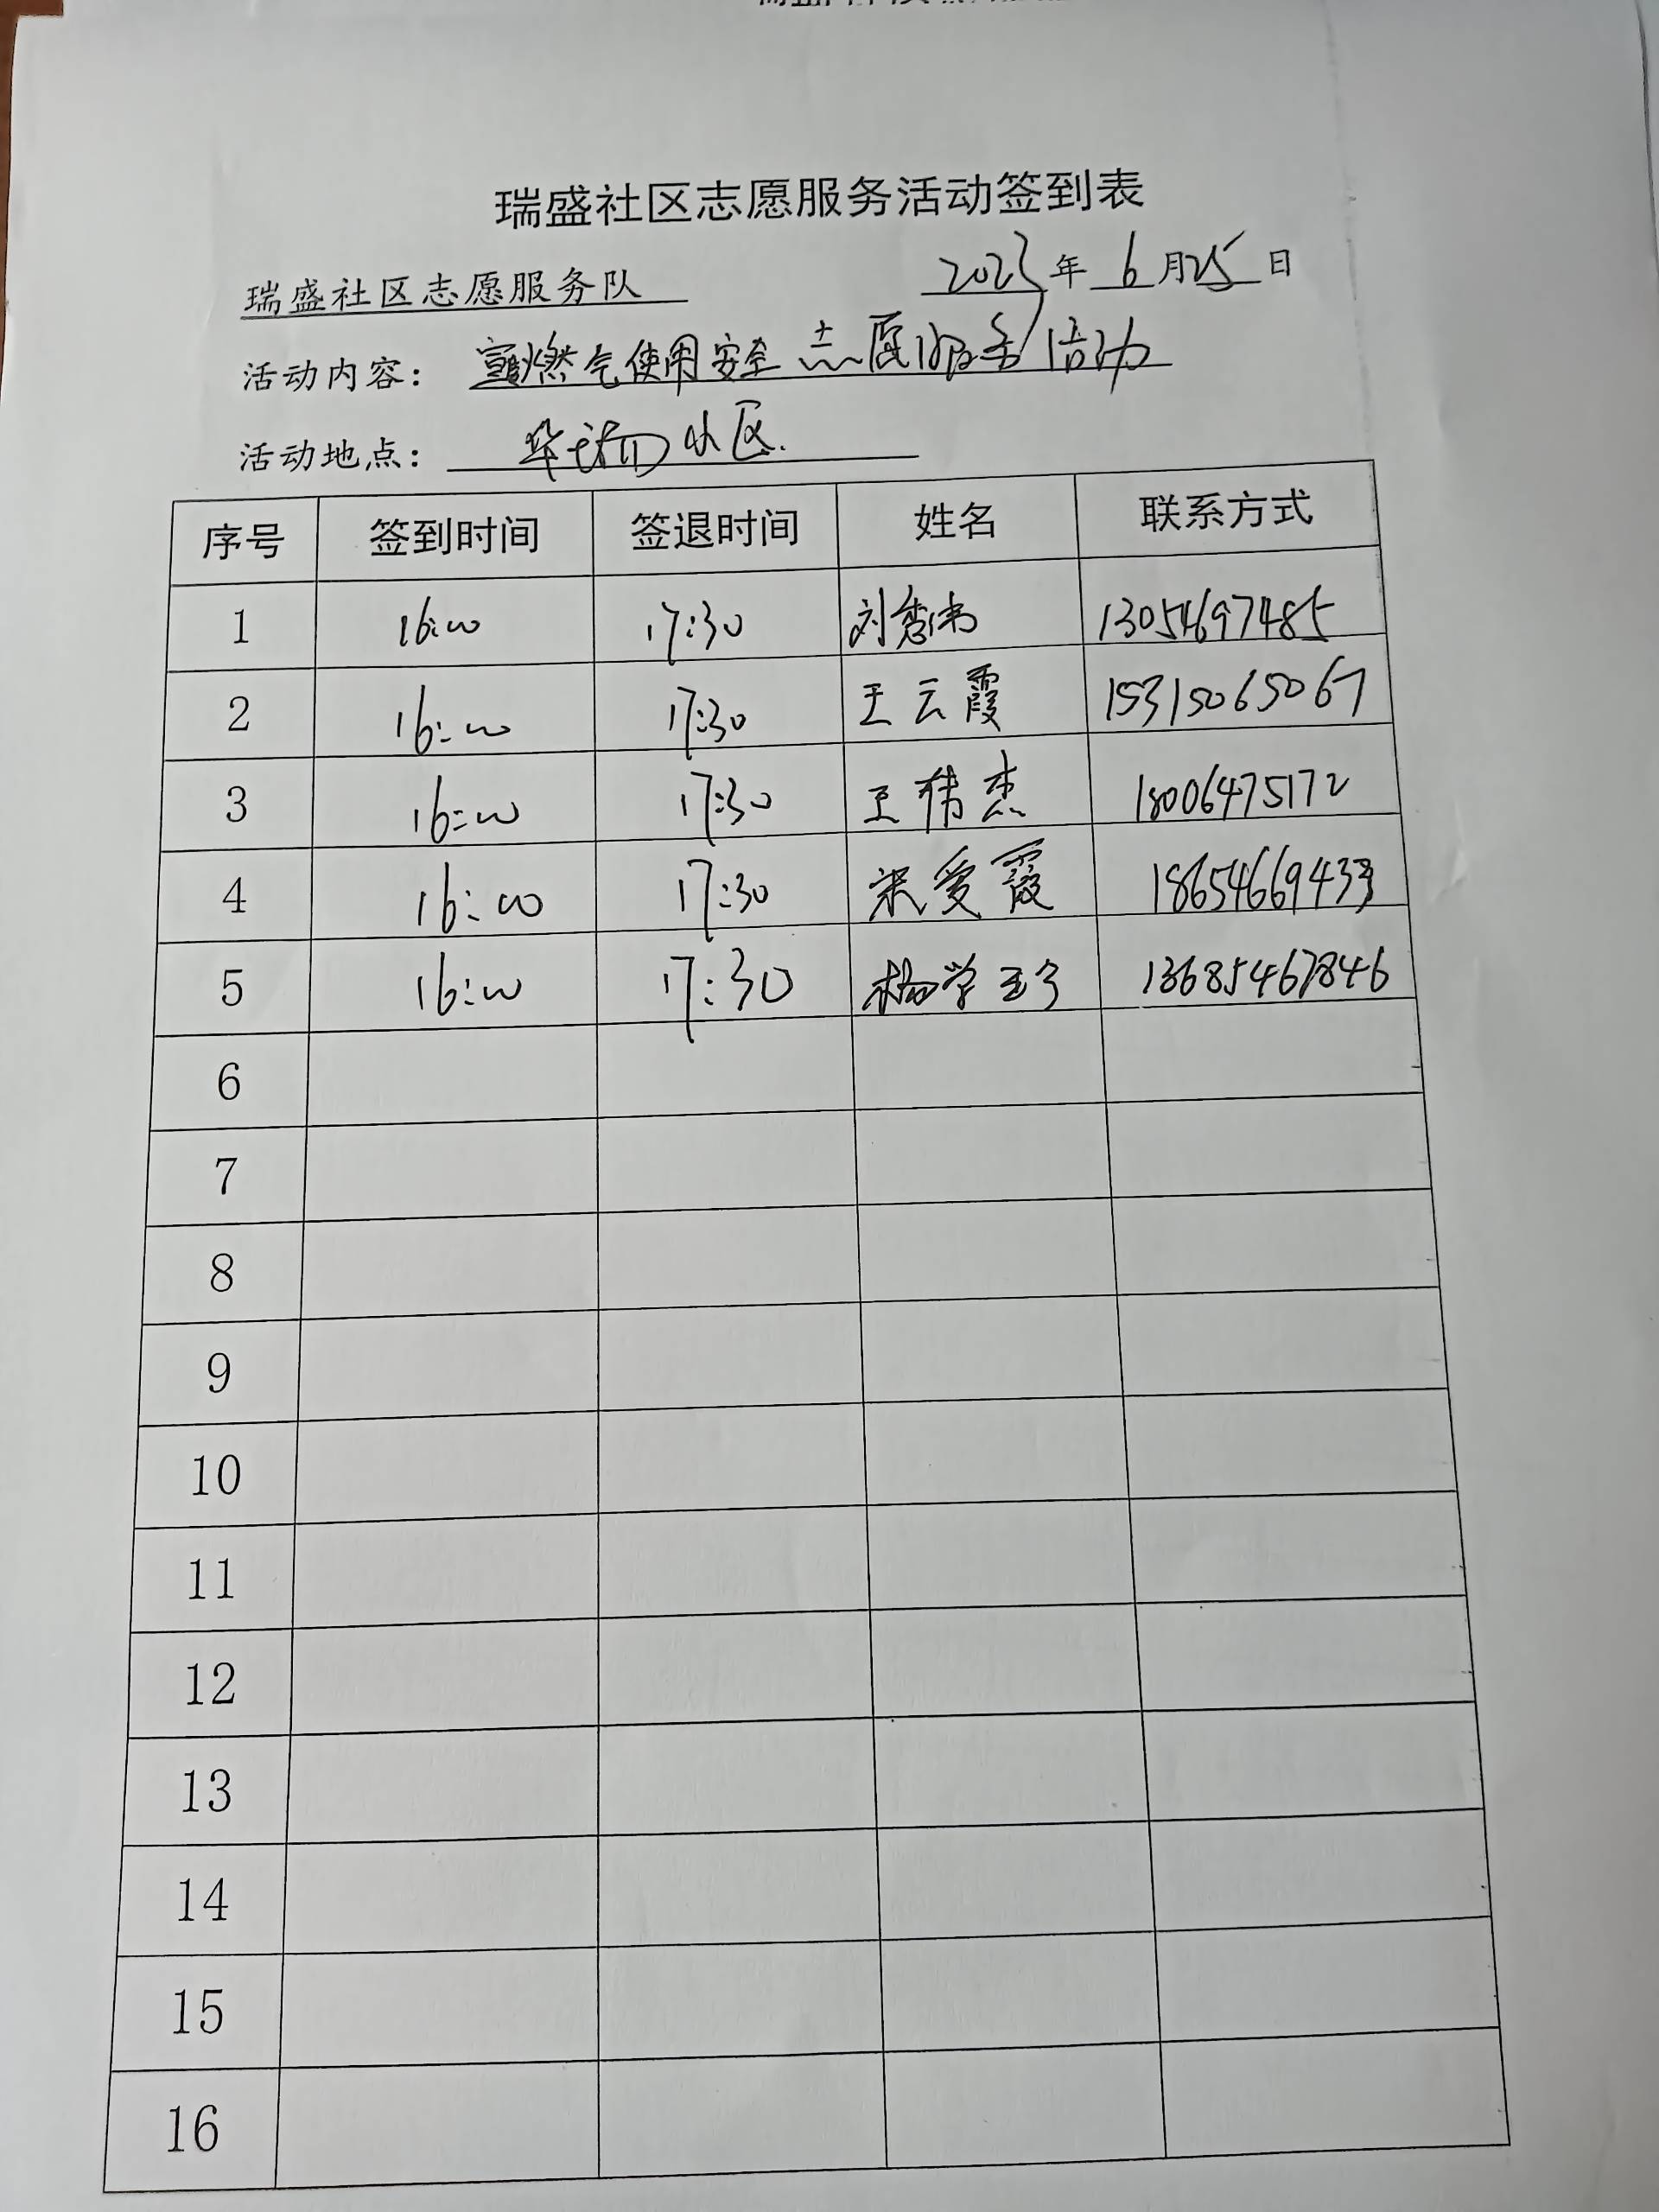 瑞盛社区志愿服务活动签到表
瑞盛社区志愿服务队 2023年6月25日
活动内容: 燃气使用安全志愿服务活动
活动地点: 小区.
序号 签到时间 签退时间 姓名 联系方式
1 16:00 17:30 刘秀伟 13054697485
2 16:00 17:30 王云霞 15315065067
3 16:00 17:30 王伟杰 18006475172
4 16:00 17:30 宋爱霞 18654669433
5 16:00 17:30 杨学 13685467846
6
7
8
9
10
11
12
13
14
15
16